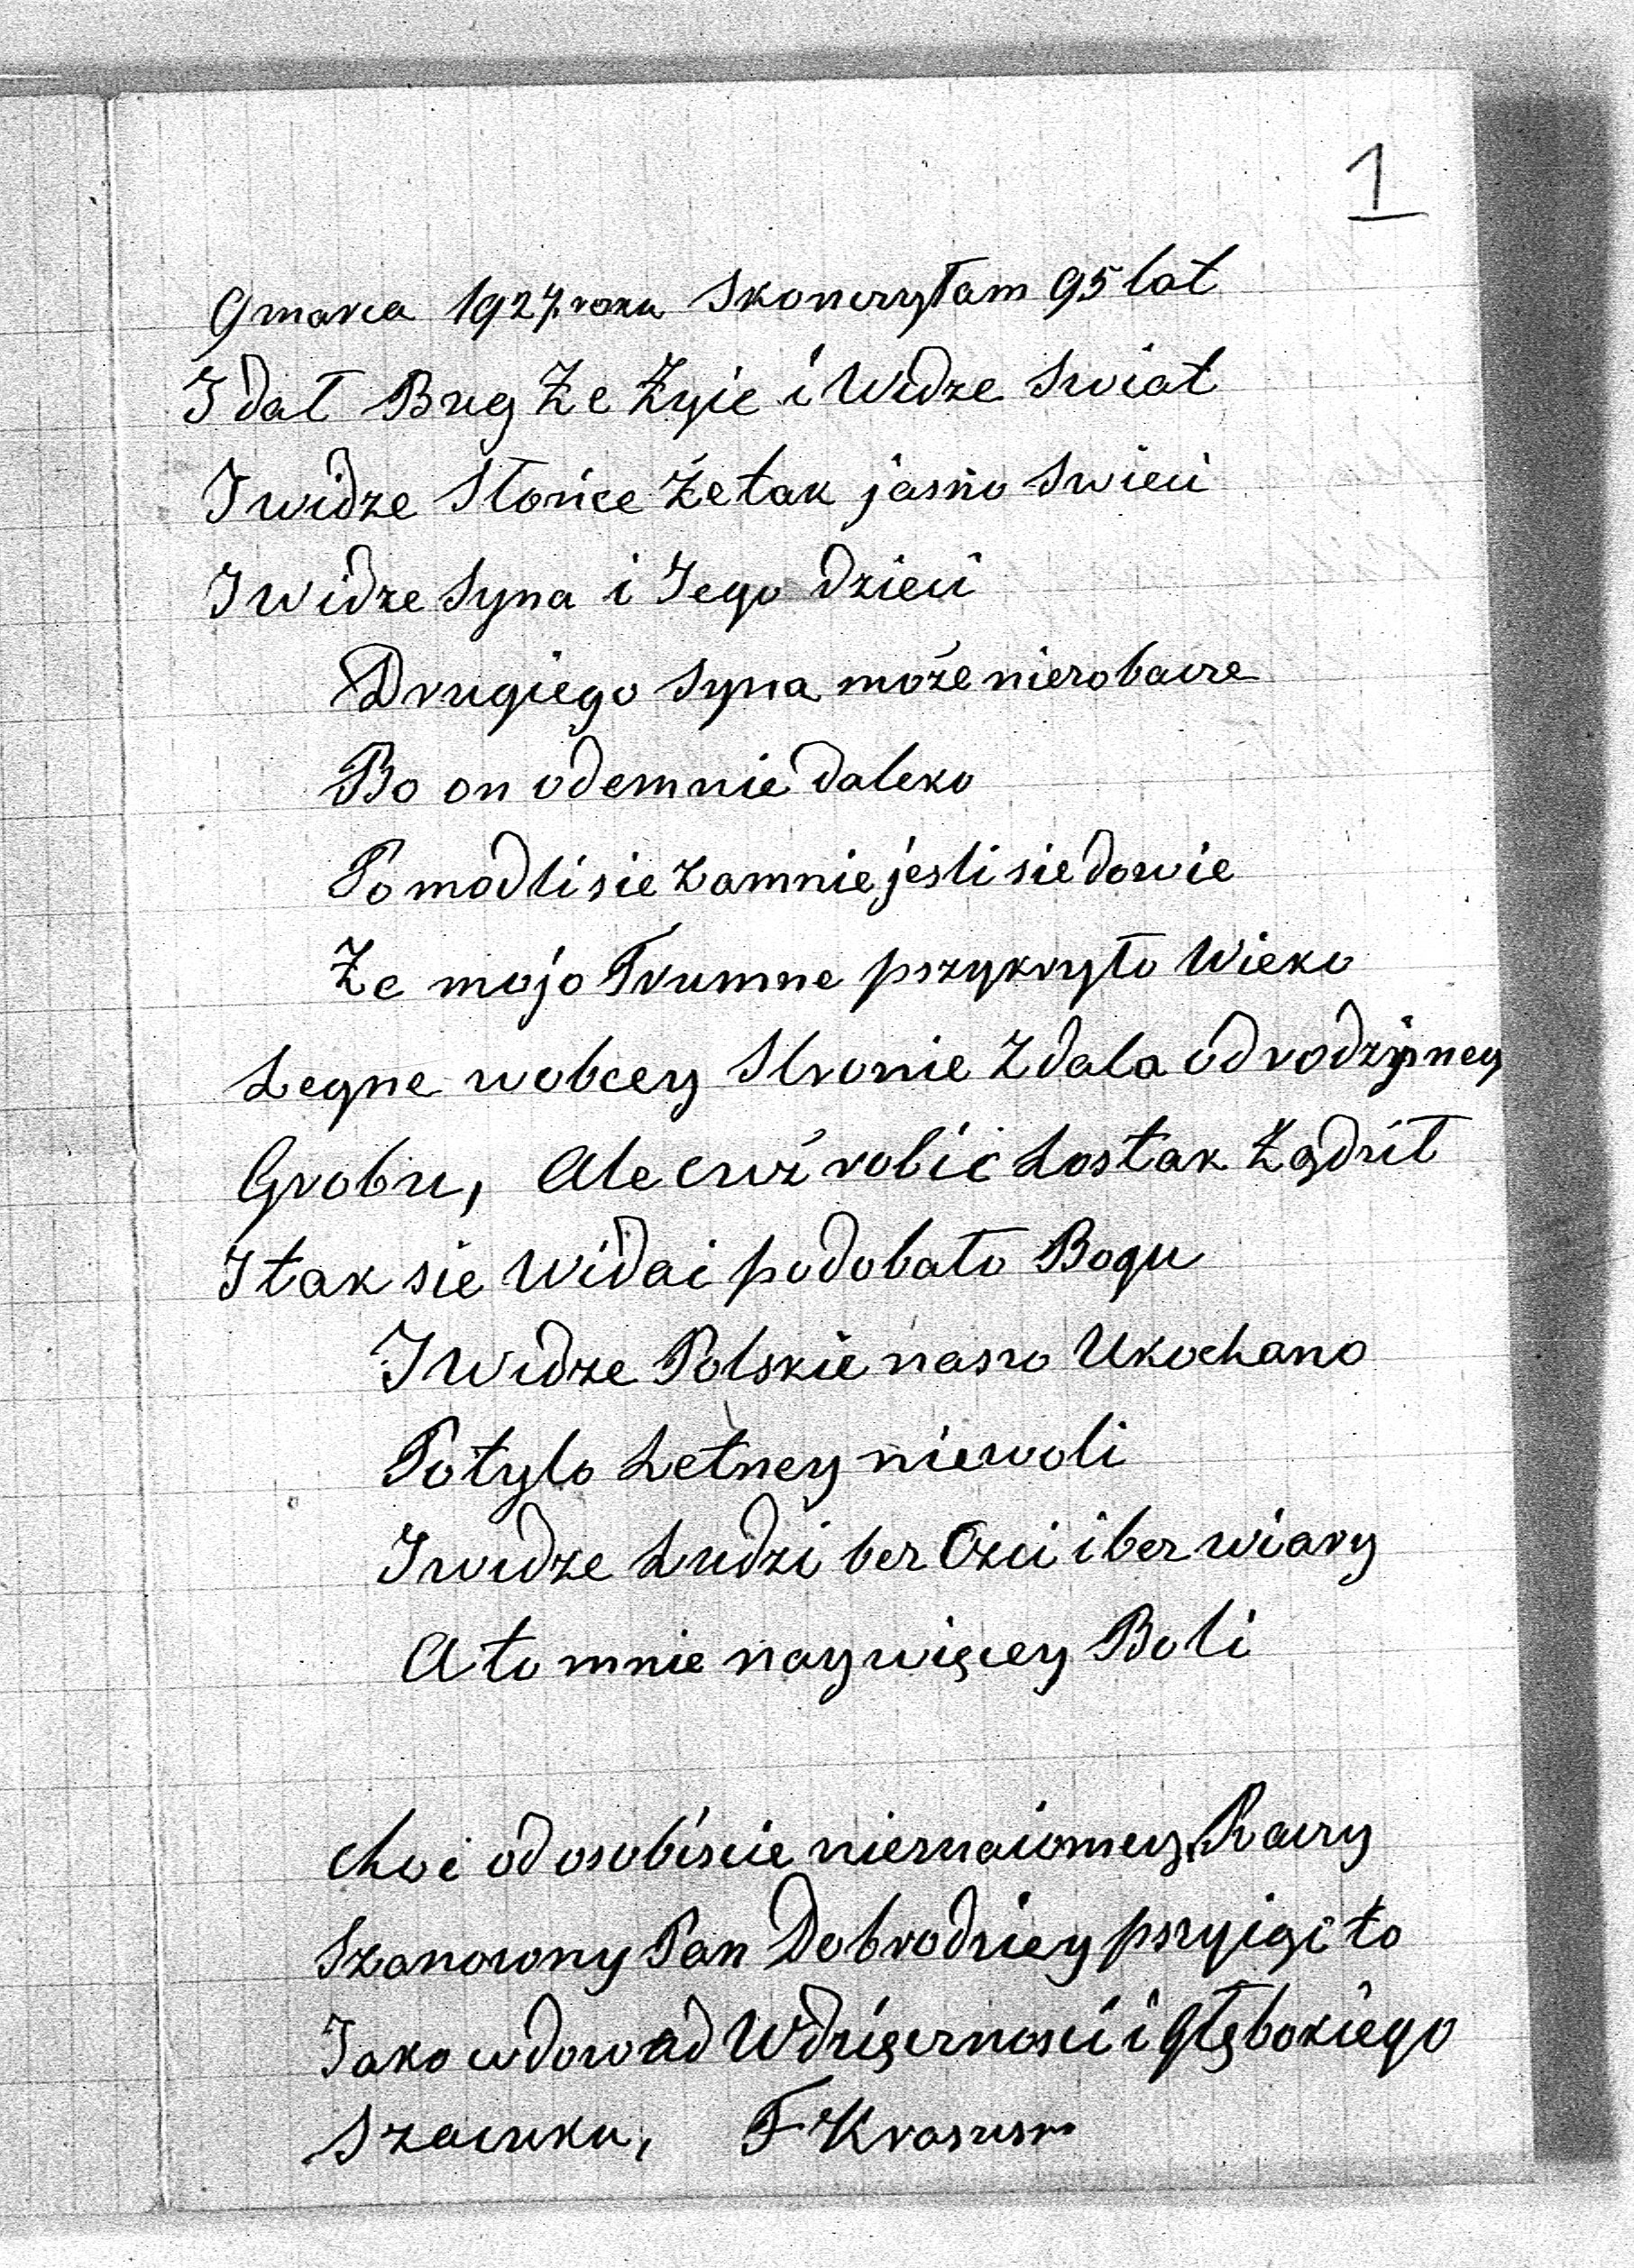 1
9 marca 1927 roku Skonczyłam 95 lat
I dał Bug Że Żyie i Widze Swiat
I widze Słońce że tak jasno Swieci
I Widze Syna i Jego dzieci
Drugiego Syna może niezobacze
Bo on odemnie daleko
Pomodli sie zamnie jesli sie dowie
Że mojo Trumne pszykryło Wieko
Legne wobcey Stronie Zdala od rodzinney
Grobu, Ale cuż robić Los tak Żądził
I tak sie Widai podobało Bogu
I Widze Polskie naszo Ukochano
Potylo Letney niewoli
I widze Ludzi bez Czci i bez wiary
A to mnie naywięcey Boli
Choć od osobiscie nieznaiomey, Raczy
Szanowny Pan Dobrodziey pszyiąć to
Jako wdowod Wdzięcznosci i Głębokiego
Szacunku,